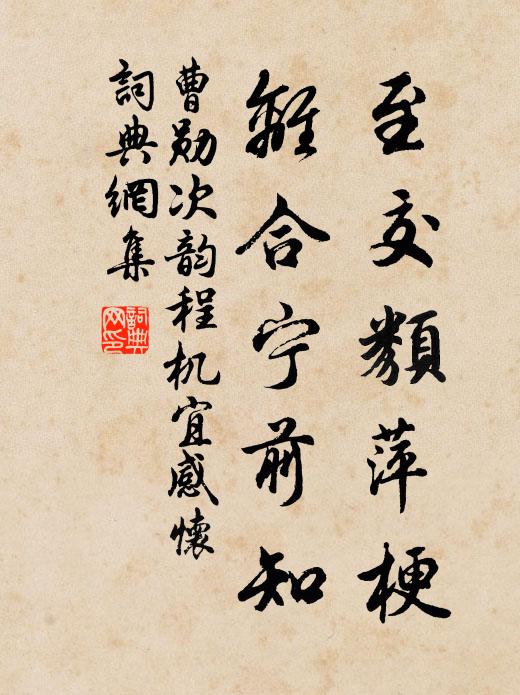 至交類萍梗
離合宁前知
曹勋次韵程机宜感懷
詞典網集
詞典网印